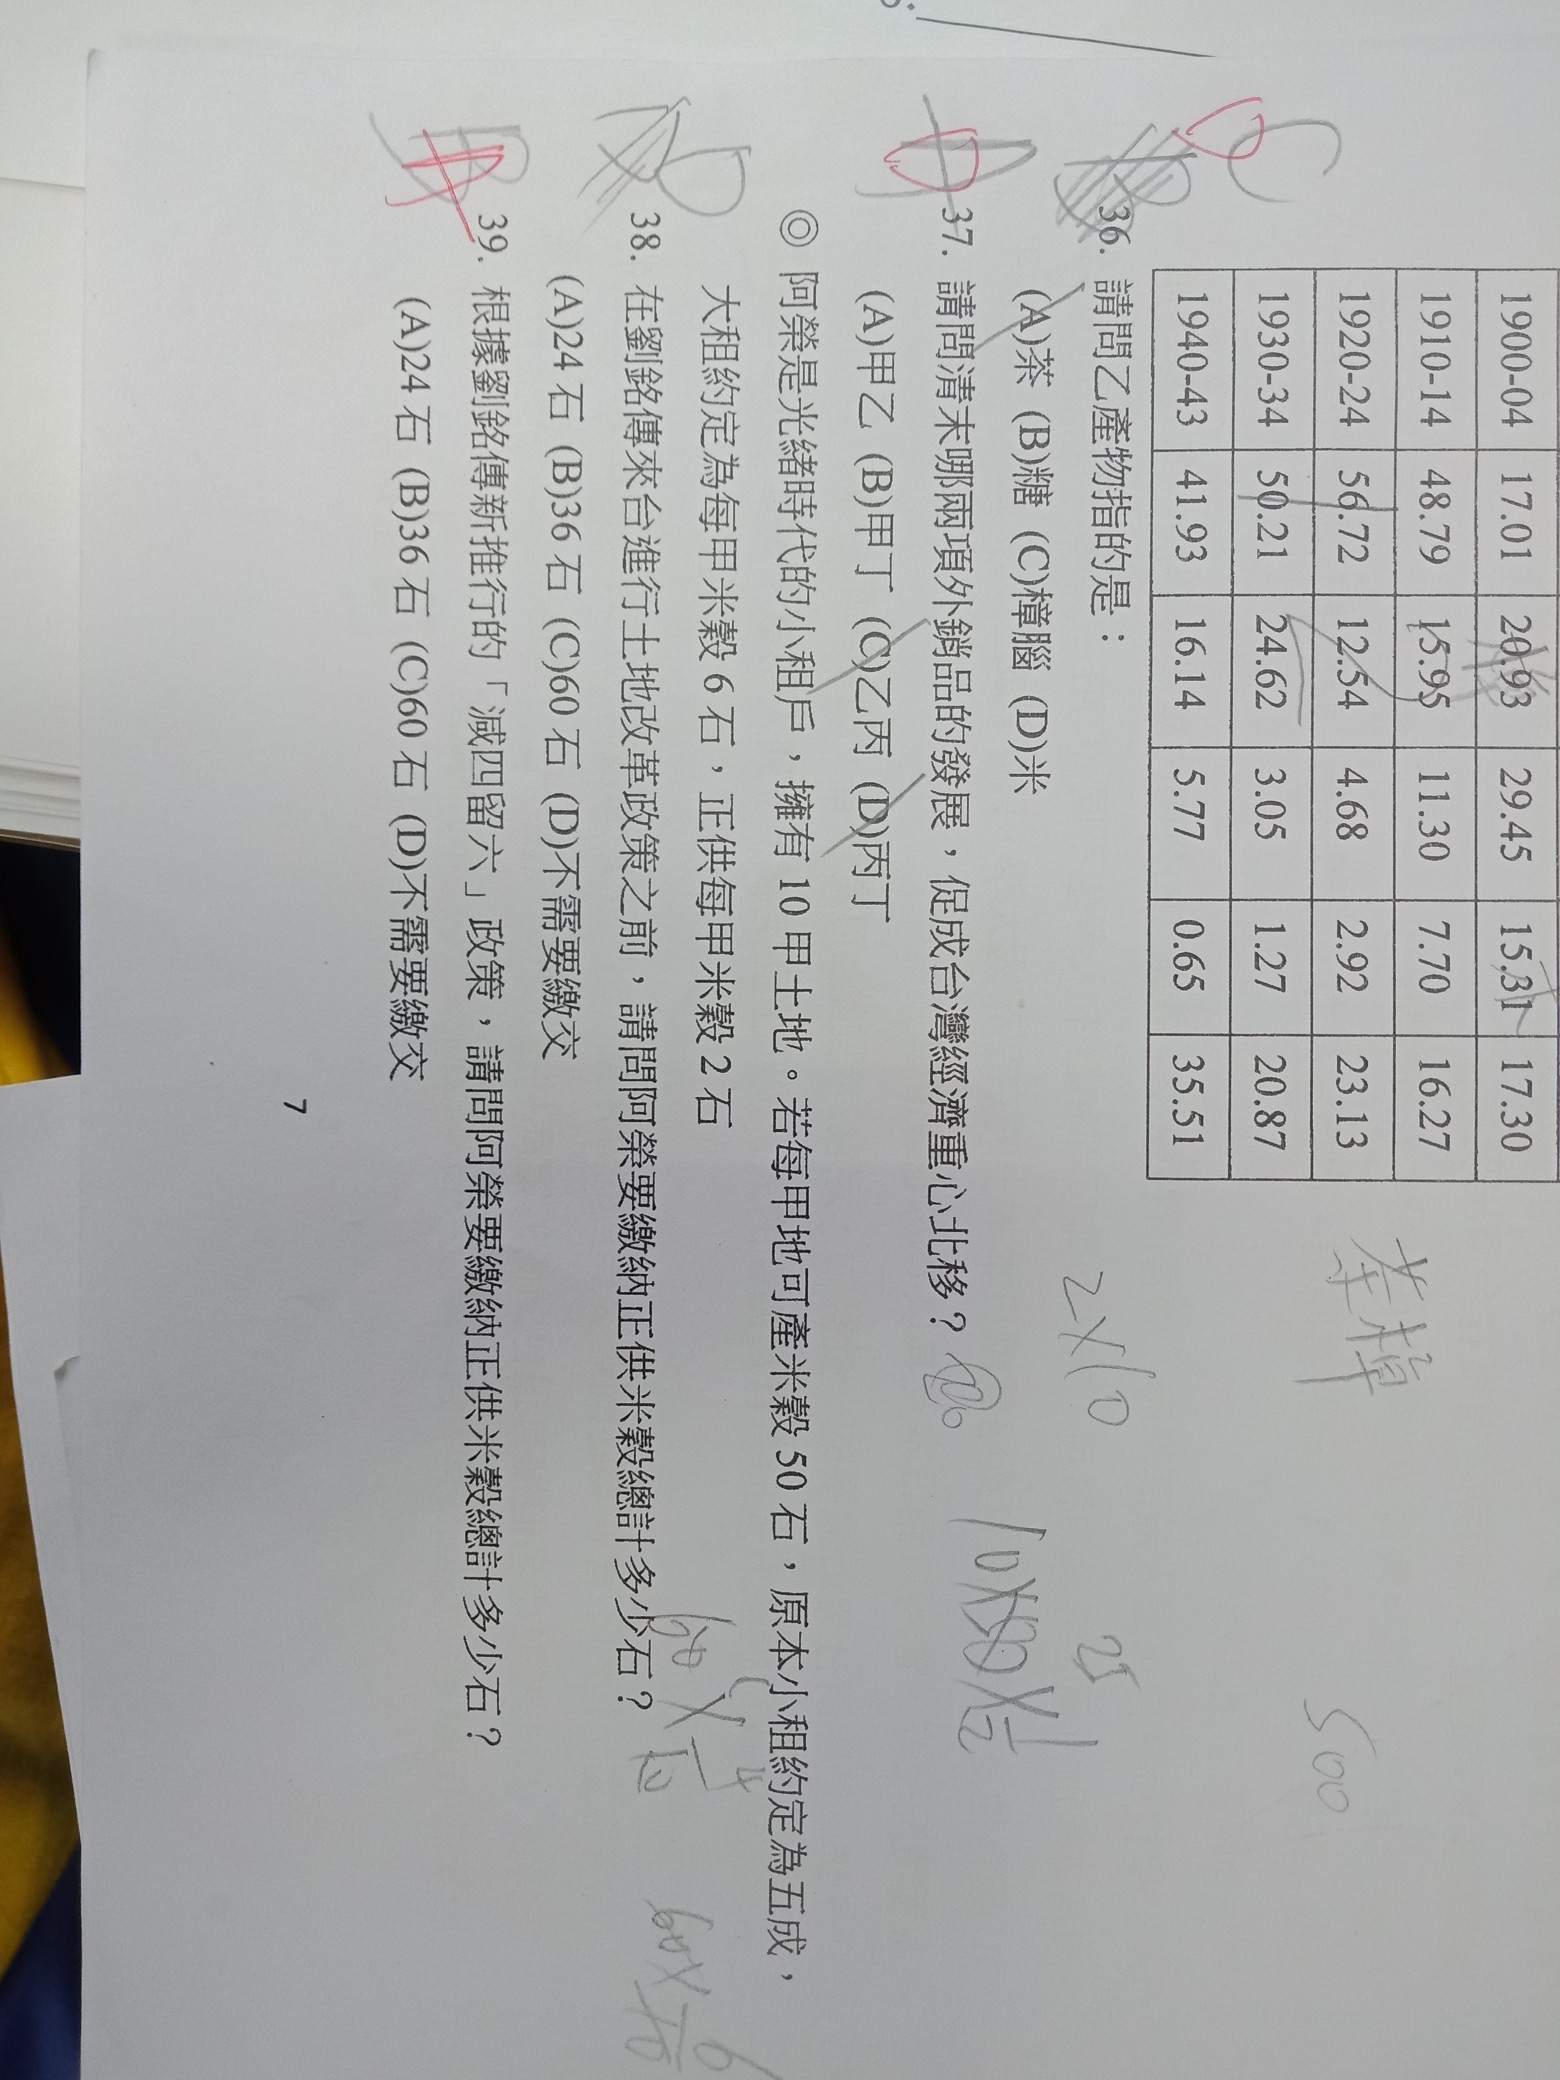 1900-04 17.01 20.93 29.45 15.31 17.30
1910-14 48.79 15.95 11.30 7.70 16.27
1920-24 56.72 12.54 4.68 2.92 23.13
1930-34 50.21 24.62 3.05 1.27 20.87
1940-43 41.93 16.14 5.77 0.65 35.51
茶樟
500
C
36. 請問乙產物指的是：
(A)茶 (B)糖 (C)樟腦 (D)米
2×10
25
37. 請問清末哪兩項外銷品的發展，促成台灣經濟重心北移？
(A)甲乙 (B)甲丁 (C)乙丙 (D)丙丁
◎ 阿榮是光緒時代的小租戶，擁有 10 甲土地。若每甲地可產米穀 50 石，原本小租約定為五成，
大租約定為每甲米穀 6 石，正供每甲米穀 2 石
D
38. 在劉銘傳來台進行土地改革政策之前，請問阿榮要繳納正供米穀總計多少石？
60×4/10
60×6/10
(A)24 石 (B)36 石 (C)60 石 (D)不需要繳交
39. 根據劉銘傳新推行的「減四留六」政策，請問阿榮要繳納正供米穀總計多少石？
(A)24 石 (B)36 石 (C)60 石 (D)不需要繳交
7